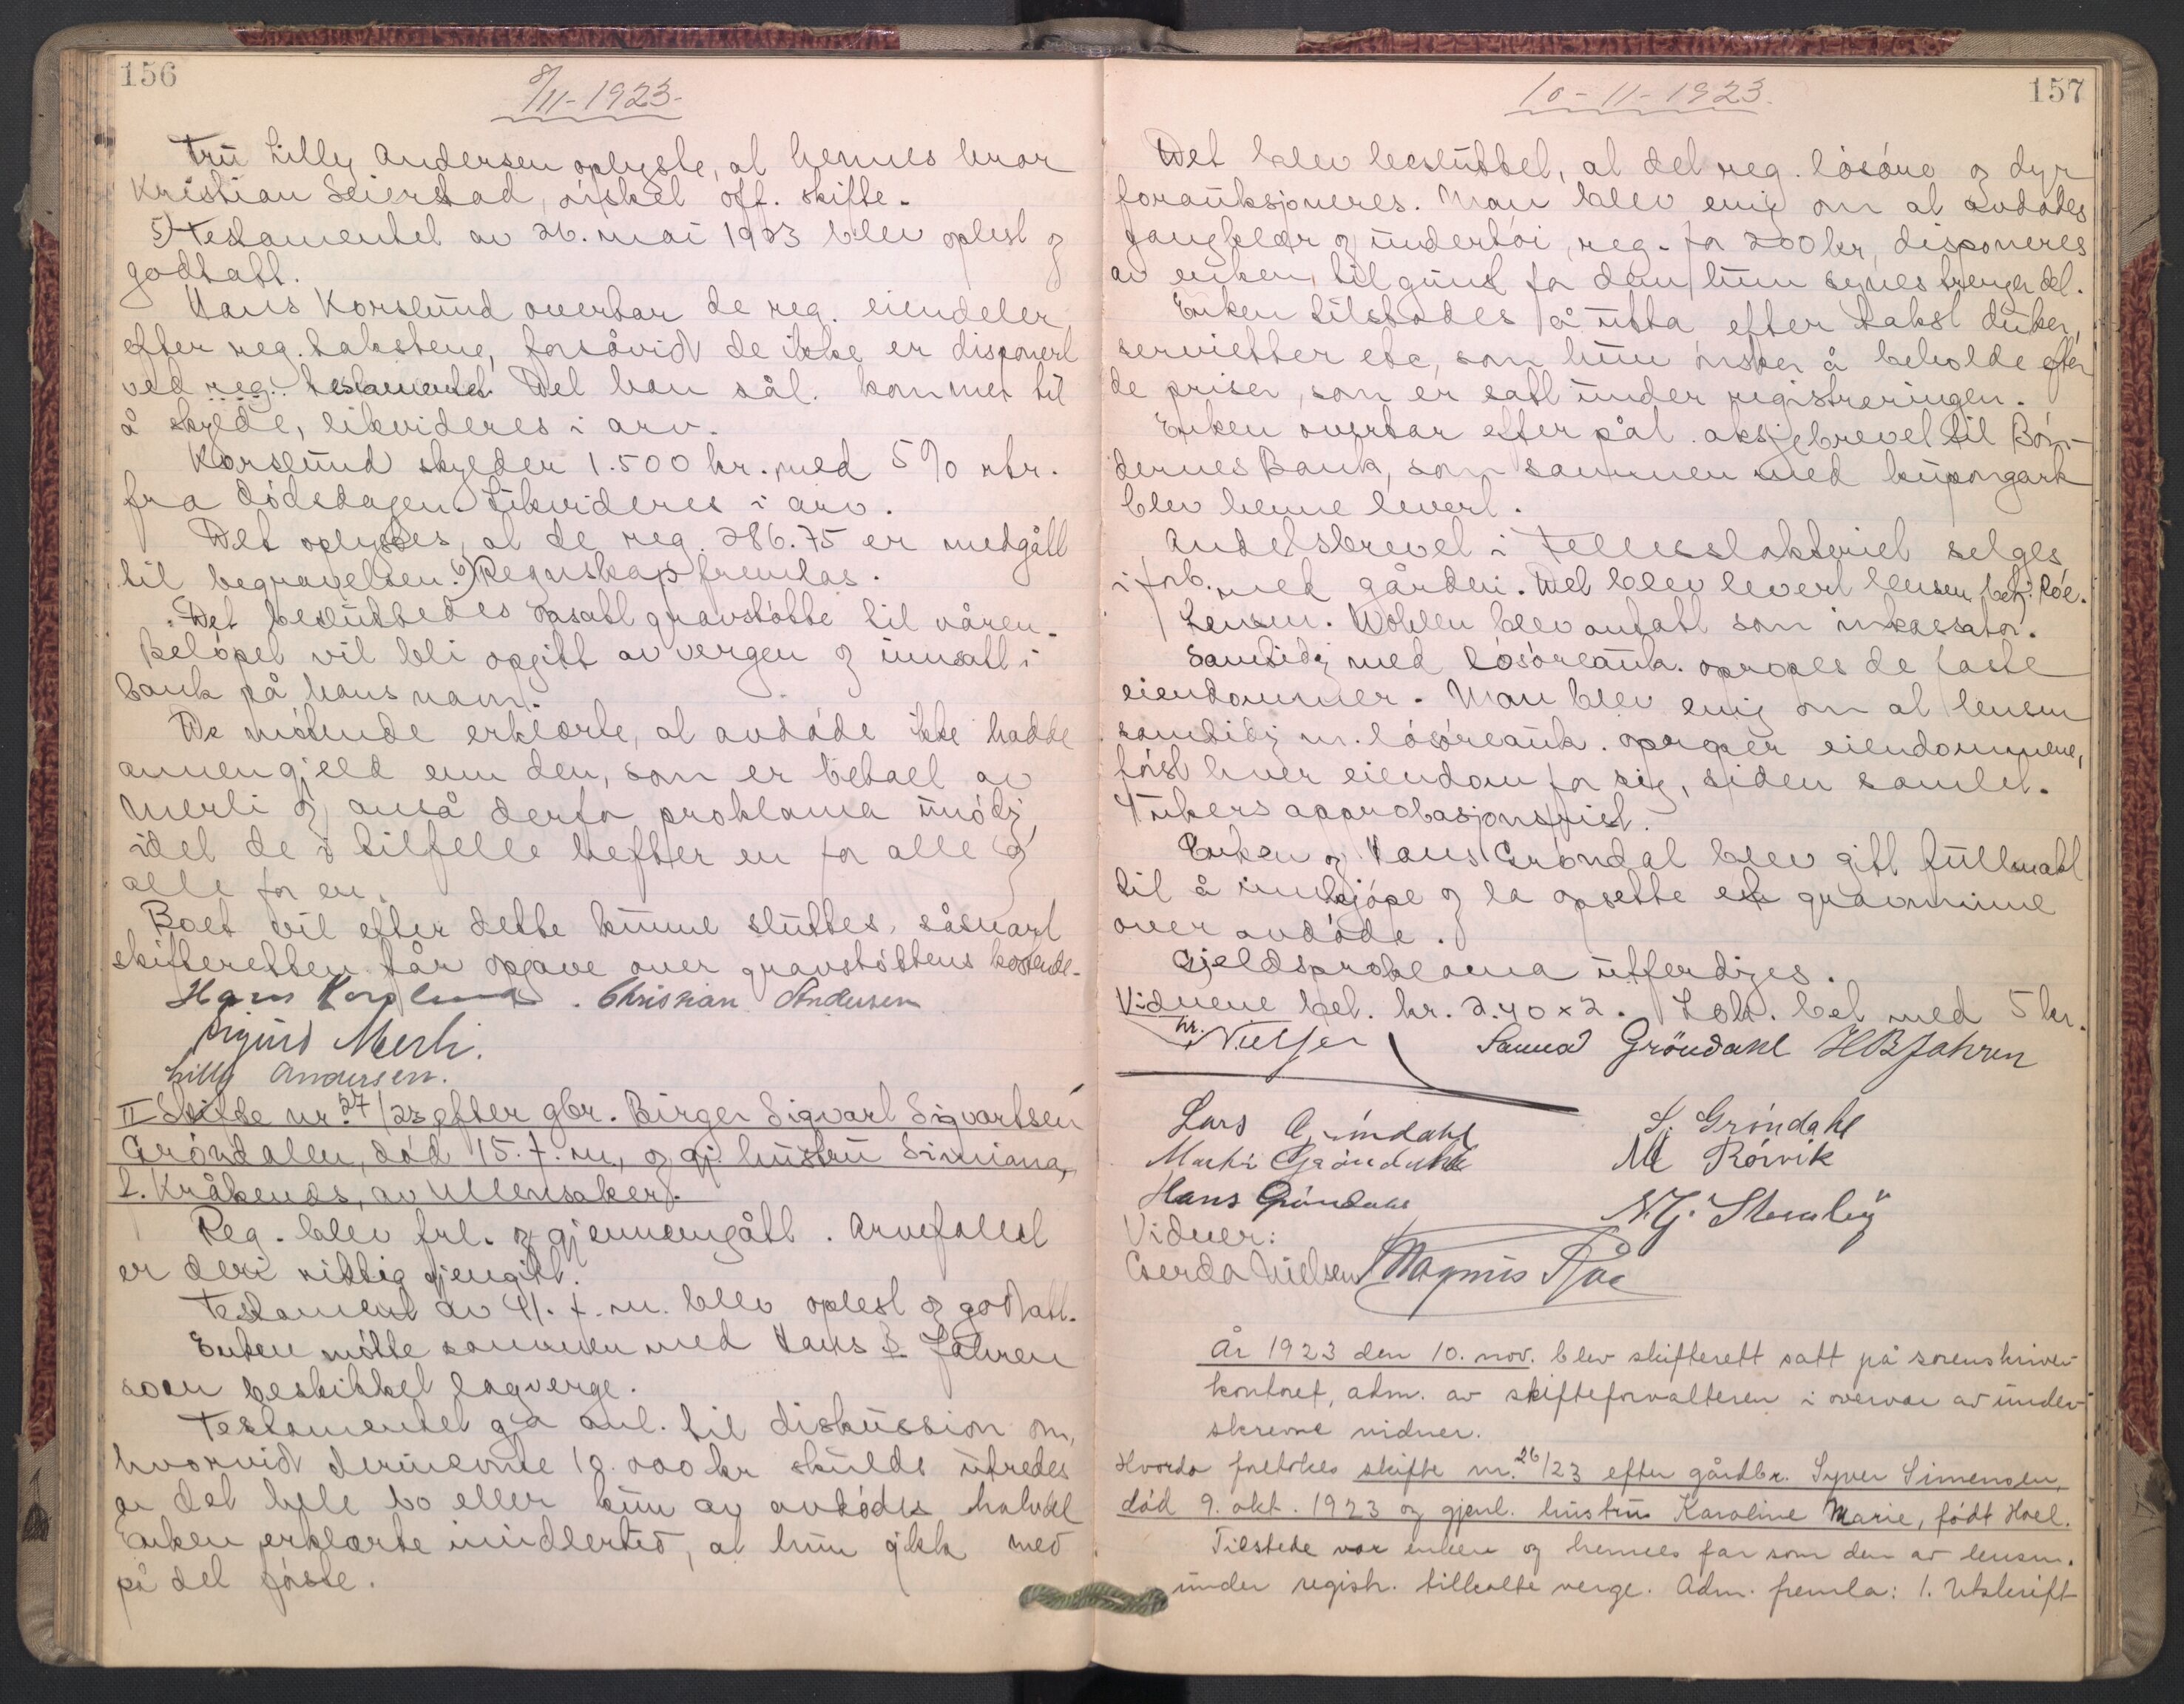 156
8/11-1923-
Fru Lilly Andersen oplyste, at hennes bror
Kristian Seierstad, ønsket off. skifte.
5) Testamentet av 26. mai 1923 blev oplest og
godtatt.
Hans Korslund overtar de reg. eiendeler
efter reg. takstene, forsåvidt de ikke er disponert
ved reg. testamentet. Det han sål. kommer til
å skylde, likvideres i arv.
Korslund skylder 1.500 kr. med 5% rtr.
fra dødsdagen. Likvideres i arv.
Det oplystes, at de reg. 286.75 er medgått
til begravelsen. 6) Regnskap fremlas.
Det besluttedes opsatt gravstøtte til våren.
Beløpet vil bli opgitt av vergen og innsatt i
bank på hans navn.
De møtende erklærte, at avdøde ikke hadde
annen gjeld enn den, som er betalt av
Merli og anså derfor proklama unødig,
idet de i tilfelle hefter en for alle og
alle for en.
Boet vil efter dette kunne sluttes, såsnart
skifteretten får opgave over gravstøttens kostende.
Hans Korslund. Christian Andersen
Sigurd Merli.
Lilly Andersen.
II Skifte nr. 27/23 efter gbr. Birger Sigvart Sigvartsen
Grøndalen, død 15. f. m., og gj. hustru Simiana,
f. Kråkenes, av Ullensaker.
Reg. blev frl. og gjennemgått. Arvefallet
er deri riktig gjengitt.
Testament av 4/1. f. m. blev oplest og godtatt.
Enken møtte sammen med Hans B. Jahren
som beskikket lagverge.
Testamentet ga anl. til diskussion om,
hvorvidt derinevnte 10.000 kr skulde utredes
av det hele bo eller kun av avdødes halvdel
Enken erklærte imidlertid, at hun gikk med
på det første.
10-11-1923.
157
Det blev besluttet, at det reg. løsøre og dyr
forauksjoneres. Man blev enig om at avdødes
gangklær og undertøi, reg. for 200 kr, disponeres
av enken til gunst for dem hun synes trenger det.
Enken tilstodes å utta efter takst duker,
servietter etc, som hun ønsker å beholde efter
de priser, som er satt under registreringen.
Enken overtar efter pål. aksjebrevet til Bøn-
dernes Bank, som sammen med kupongark
blev henne levert.
Andelsbrevet i Fellesslakteriet selges
i forb. med gården. Det blev levert lensm. betj. Røe.
Lensm. Wohlen blev antatt som inkassator.
Samtidig med løsøreauk. opropes de faste
eiendommer. Man blev enig om at lensm
samtidig m. løsøreauk. oproper eiendommene,
først hver eiendom for sig, siden samlet.
4 ukers approbasjonsfrist.
Enken og Hans Grøndal blev gitt fullmakt
til å innkjøpe og la opsette et gravminne
over avdøde.
Gjeldsproklama utferdiges.
Vidnene bet. kr. 2.40 x 2. Lok. bet med 5 kr.
hr. Nielsen Sanna Grøndahl HBJahren
Lars Grøndahl S. Grøndahl
Marki Grøndahl M Rørvik
Hans Grøndahl
Vidner:
Gerda Nielsen Magnus Røe
År 1923 den 10. nov. blev skifterett satt på sorenskriver-
kontoret, adm. av skifteforvalteren i overvær av under-
skrevne vidner.
Hvorda foretokes skifte nr. 26/23 efter gårdbr. Syver Simensen,
død 9. okt. 1923 og gjenl. hustru Karoline Marie, født Hoel.
Tilstede var enken og hennes far som den av lensm.
under registr. tilkalte verge. Adm. fremla: 1. Utskrift